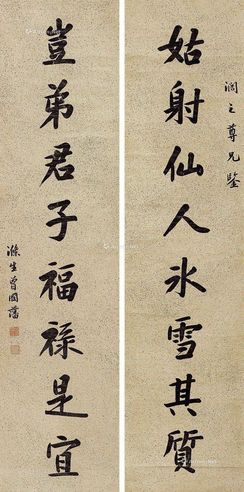 润之尊兄鑒
姑射仙人氷雪其質
豈弟君子福祿是宜
滌生曾國藩